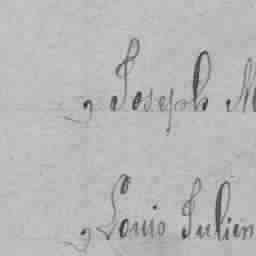 „ Joseph M
„ Louis Julien